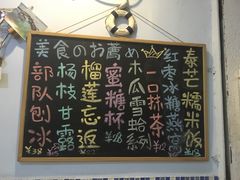 美食のお薦め
部队刨冰
杨枝甘露
榴莲忘返
蜜糖杯
木瓜雪蛤系列
一口抹茶
红枣冰糖燕窝
泰芒糯米饭